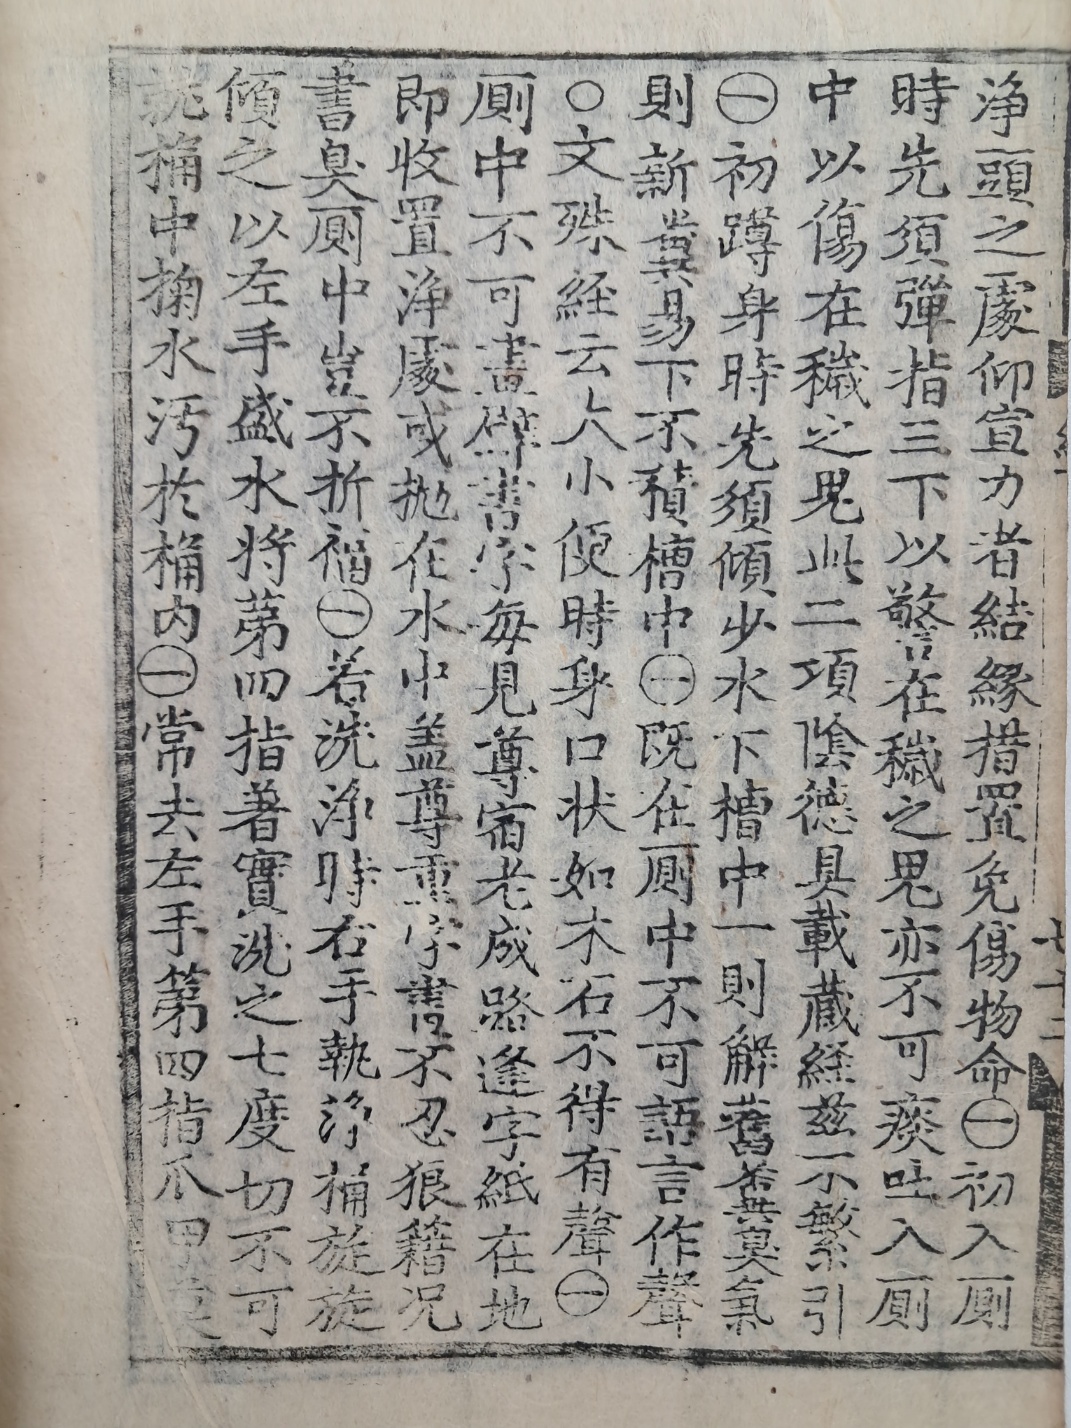 淨頭之處仰宣力者結緣措置免傷物命㊀初入厠
時先須彈指三下以警在穢之鬼亦不可痰吐入厠
中以傷在穢之鬼此二項陰德具載藏経兹不繁引
㊀初蹲身時先須傾少水下槽中一則解舊糞臭氣
則新糞易下不積槽中㊀既在厠中不可語言作聲
○文殊経云大小便時身口状如木石不得有聲㊀
厠中不可畫壁書字每見尊宿老成路逢字紙在地
即收置淨處或抛在水中盖尊重字書不忍狼籍况
書臭厠中豈不折福㊀若洗淨時右手執淨桶旋旋
傾之以左手盛水將苐四指著實洗之七度切不可
就桶中掬水污於桶内㊀常去左手第四指爪甲
七十二